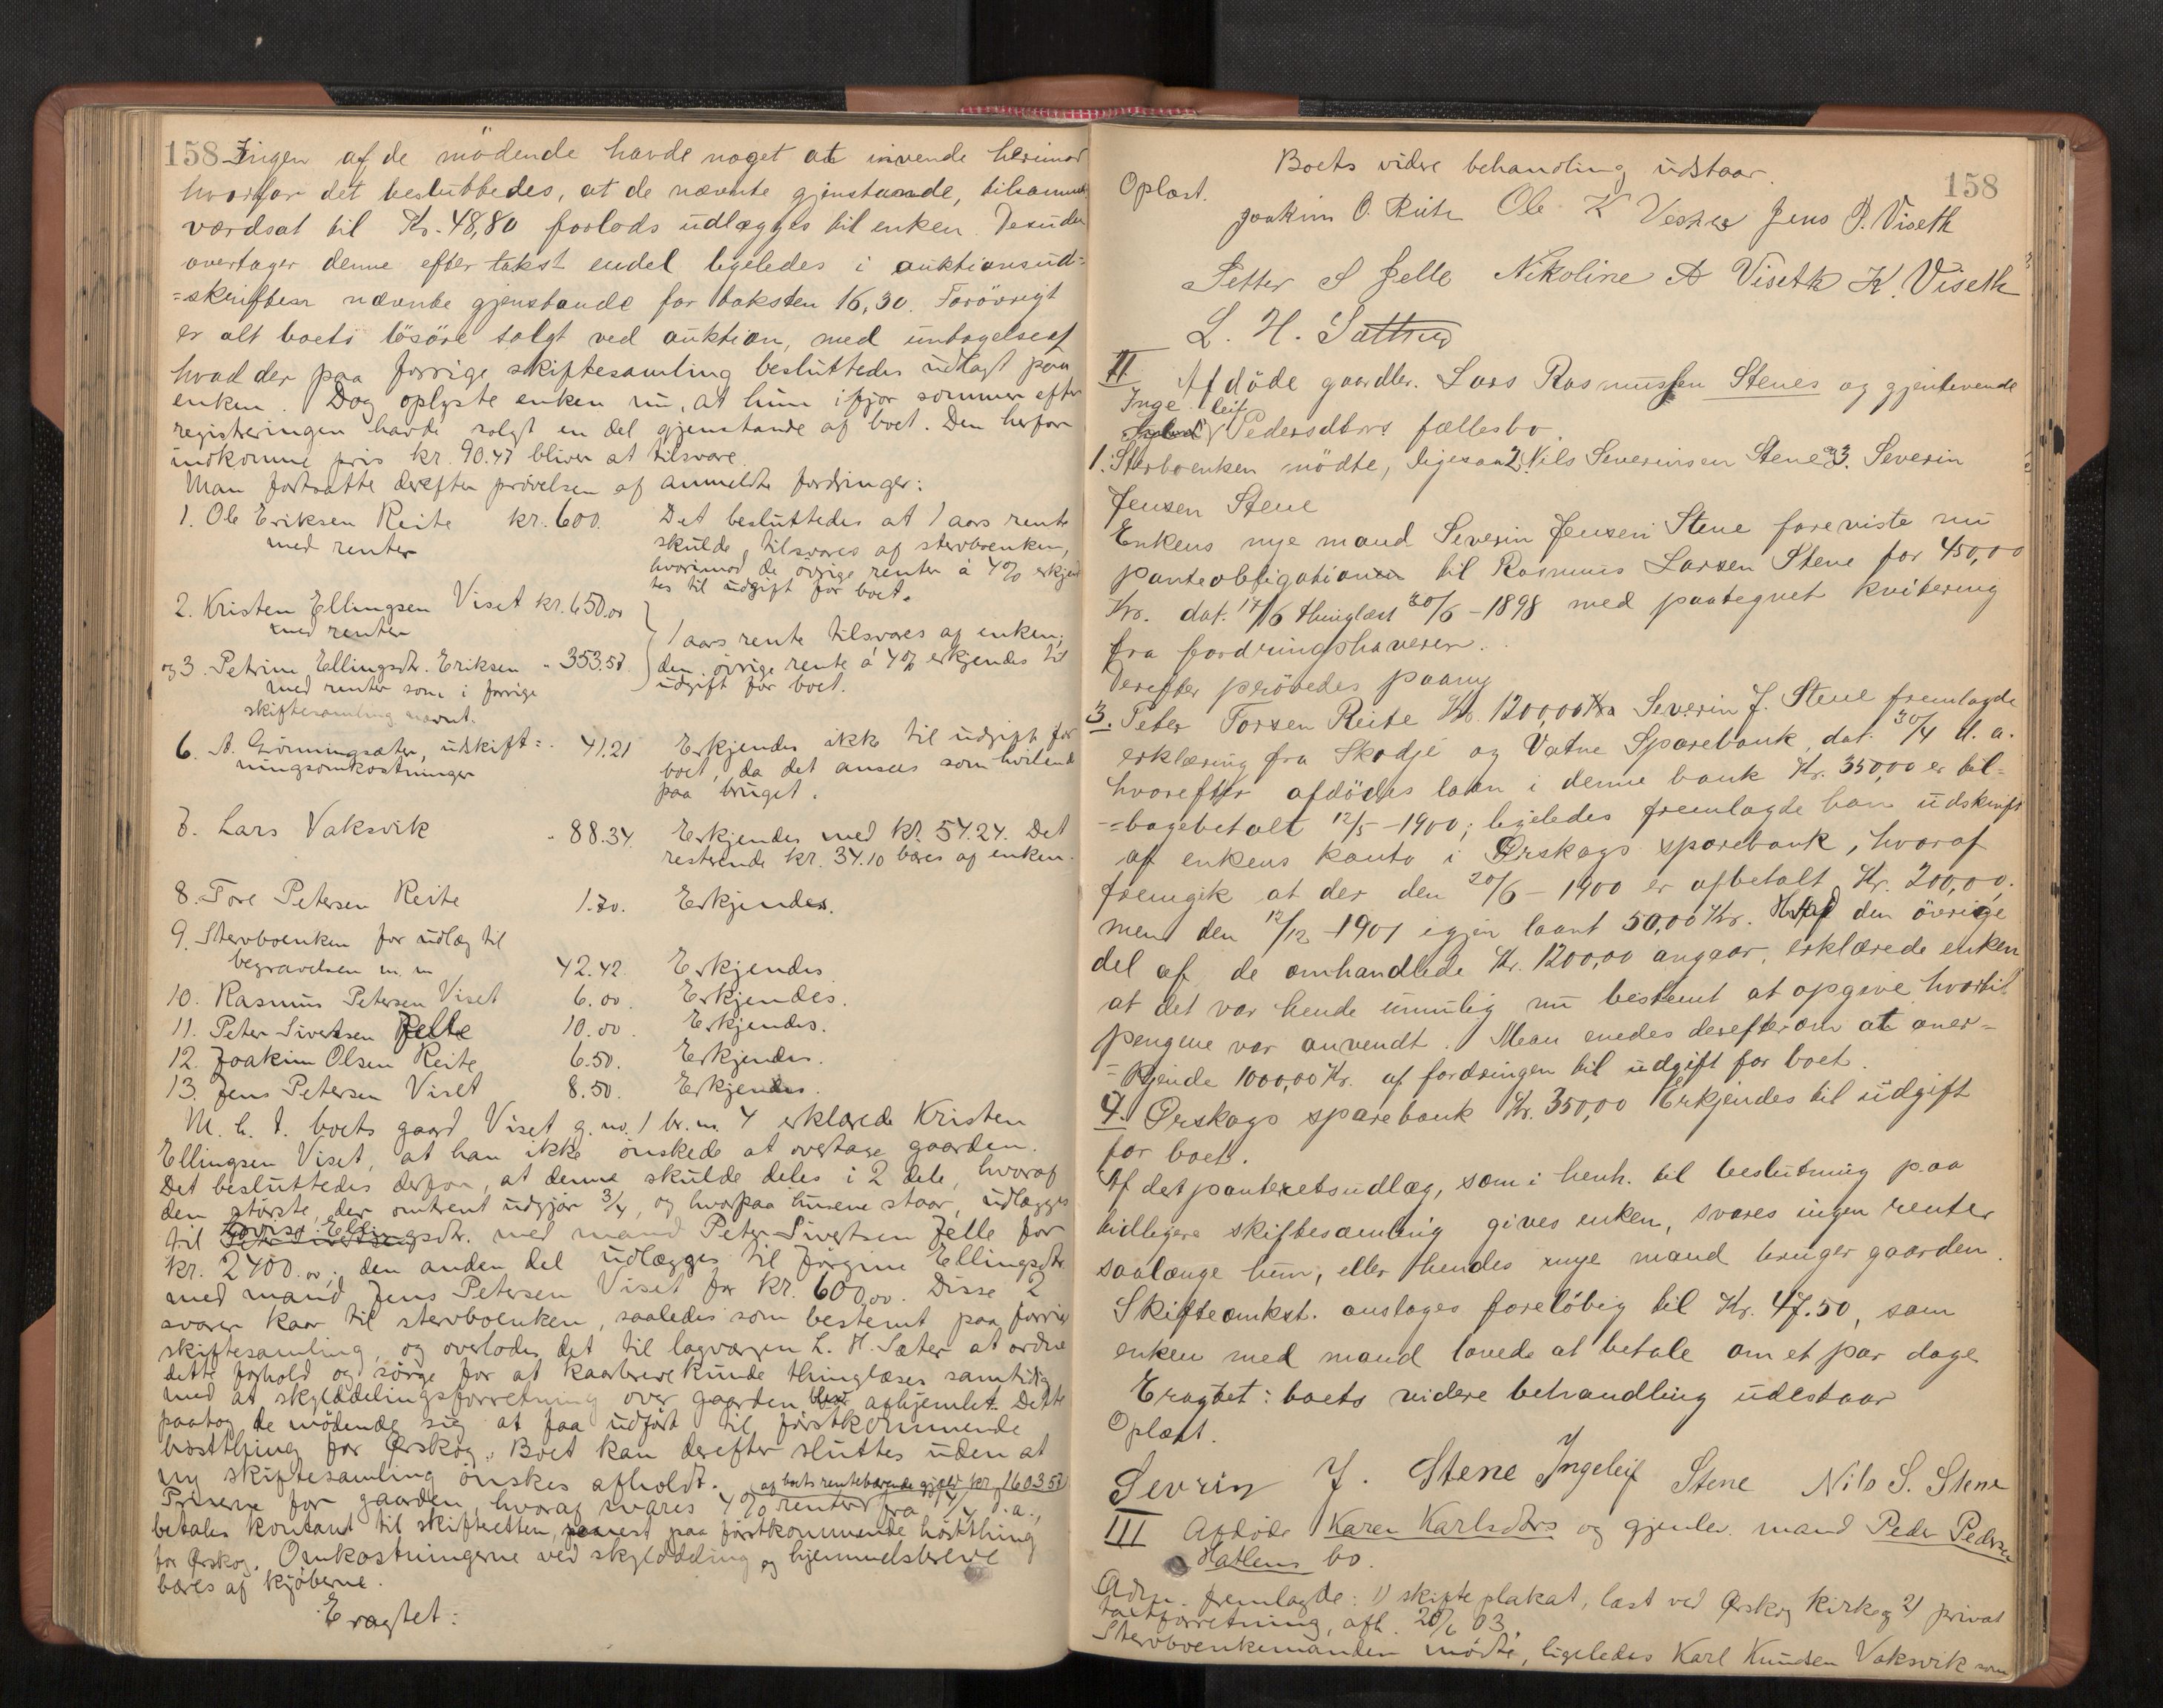 158 Ingen af de mödende havde noget at invende herimod
hvorfor det besluttedes, at de nævnte gjenstande, tilsammen
værdsat til Kr. 48,80 forlods udlægges til enken. Desuden
overtager denne efter takst endel ligeledes i auktionsud=
=skriften nævnte gjenstande for taksten 16,30. Forövrigt
er alt boets lösöre solgt ved auktion, med undtagelse af
hvad der paa forrige skiftesamling besluttedes udlagt paa
enken. Dog oplyste enken nu, at hun ifjor sommer efter
registreringen havde solgt en del gjenstande af boet. Den herfor
indkomne pris kr. 90.47 bliver at tilsvare.
Man fortsatte derefter prövelsen af anmeldte fordringer:
1. Ole Eriksen Reite kr. 600. Det besluttedes at 1 aars rente
med renter skulde tilsvares af stervboenken,
hvorimod de övrige renter à 4% erkjend
tes til udgift for boet.
2. Kristen Ellingsen Viset kr. 650.00
med renter 1 aars rente tilsvares af enken;
og 3. Petrine Ellingsdtr. Eriksen " 353.57 den övrige rente á 4% erkjendes til
med renter som i forrige udgift for boet.
skiftesamling nævnt.
6. A. Grönningsæter, udskift= - 41.21 Erkjendes ikke til udgift for
ningsomkostninger boet, da det ansees som hvilende
paa bruget.
7. Lars Vaksvik " 88.34. Erkjendes med kr. 54.24. Det
resterende kr. 34.10 bæres af enken.
8. Tore Petersen Reite 1.70. Erkjendes.
9. Stervboenken for udlæg til
begravelsen m. m 42.42. Erkjendes
10. Rasmus Petersen Viset 6.00. Erkjendes.
11. Peter Sivertsen Jelle 10.00. Erkjendes.
12. Joakim Olsen Reite 6.50. Erkjendes.
13. Jens Petersen Viset 8.50. Erkjendes.
M. h. t. boets gaard Viset g. no. 1 br. no. 4 erklærede Kristen
Ellingsen Viset, at han ikke önskede at overtage gaarden.
Det besluttedes derfor, at denne skulde deles i 2 dele, hvoraf
den störste, der omtrent udgjör 3/4, og hvorpaa husene staar, udlægges
til Lovise Ellingsdtr. med mand Peter Sivertsen Jelle for
kr. 2400.00; den anden del udlægges til Jörgine Ellingsdtr
med mand Jens Petersen Viset for kr. 600.00. Disse 2
svarer kaar til stervboenken, saaledes som bestemt paa forrige
skiftesamling, og overlodes det til lagværgen L. H. Sæter at ordne
dette forhold og sörge for at kaarbrevet kunde thinglæses samtidig
med at skylddelingsforretning over gaarden blev afhjemlet. Dette
paatog de mödende sig at faa udfört til förstkommende
höstthing for Ørskog. Boet kan derefter sluttes uden at
ny skiftesamling önskes afholdt. af boets rentebærende gjeld kr. 1603.57
Prisene for gaarden, hvoraf svares 4% renter fra 14/4 d. a.,
betales kontant til skifteretten, senest paa förstkommende höstthing
for Ørskog. Omkostningerne ved skylddeling og hjemmelsbreve
bæres af kjöberne.
Eragtet:
Boets videre behandling udstaar. 158
Oplæst.
Joakim O. Reite Ole K Jens P. Viseth
Petter S Jelle Nikoline A Viseth K. Viseth
L. H. Sætter
II Afdöde gaardbr. Lars Rasmussen Stenes og gjenlevende
Inge leif
Pedersdtters fællesbo.
1. Stervboenken mödte, ligesaa 2. Nils Severinsen Stene og 3. Severin
Jensen Stene
Enkens nye mand Severin Jensen Stene foreviste nu
panteobligationen til Rasmus Larsen Stene for 450,00
Kr. dat. 17/6 thinglæst 20/6 - 1898 med paategnet kvitering
fra fordringshaveren.
Derefter prövedes paany
3. Peter Torsen Reite Kr. 1200,00 Severin J. Stene fremlagde
erklæring fra Skodje og Vatne Sparebank, dat. 30/4 d. a.
hvorefter afdödes laan i denne bank Kr. 350,00 er til=
=bagebetalt 12/5 - 1900; ligeledes fremlagde han udskrift
af enkens konto i Ørskogs sparebank, hvoraf
fremgik at der den 20/6 - 1900 er afbetalt Kr. 200,00,
men den 12/12 - 1901 igjen laant 50,00 Kr. Hvad den övrige
del af de omhandlede Kr. 1200,00 angaar, erklærede enken
at det var hende umulig nu bestemt at opgive hvortil
pengene var anvendt. Man enedes derefter om at aner=
=kjende 1000,00 Kr. af fordringen til udgift for boet.
4. Ørskogs sparebank Kr. 350,00 Erkjendes til udgift
for boet.
Af det panteretsudlæg, som i henh. til beslutning paa
tidligere skiftesamling gives enken, svares ingen renter
saalænge hun, eller hendes nye mand bruger gaarden.
Skifteomkst. anslages foreløbig til Kr. 47.50, som
enken med mand lovede at betale om et par dage.
Eragtet: boets videre behandling udestaar
Oplæst.
Sevrin J. Stene Ingeleif Stene Nils S. Stene
III Afdöde Karen Karlsdtrs og gjenlev. mand Peder Pedersen
Hatlens bo.
Adm. fremlagde: 1) skifteplakat, læst ved Ørskog kirke og 2) privat
taxtforretning, afh. 20/6 03.
Stervboenkemanden mödte, ligeledes Karl Knudsen Vaksvik som